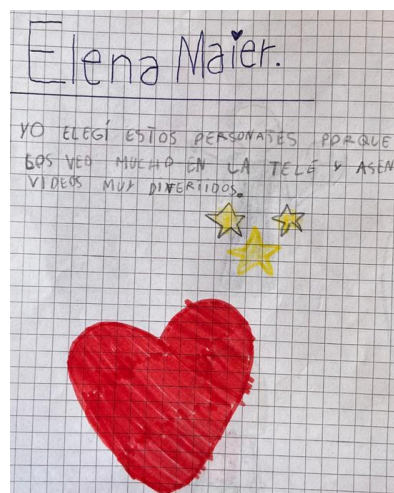 Elena Maier.
YO ELEGÍ ESTOS PERSONAJES PORQUE
LOS VEO MUCHO EN LA TELE Y ASEN
VIDEOS MUY DIVERTIIDOS.